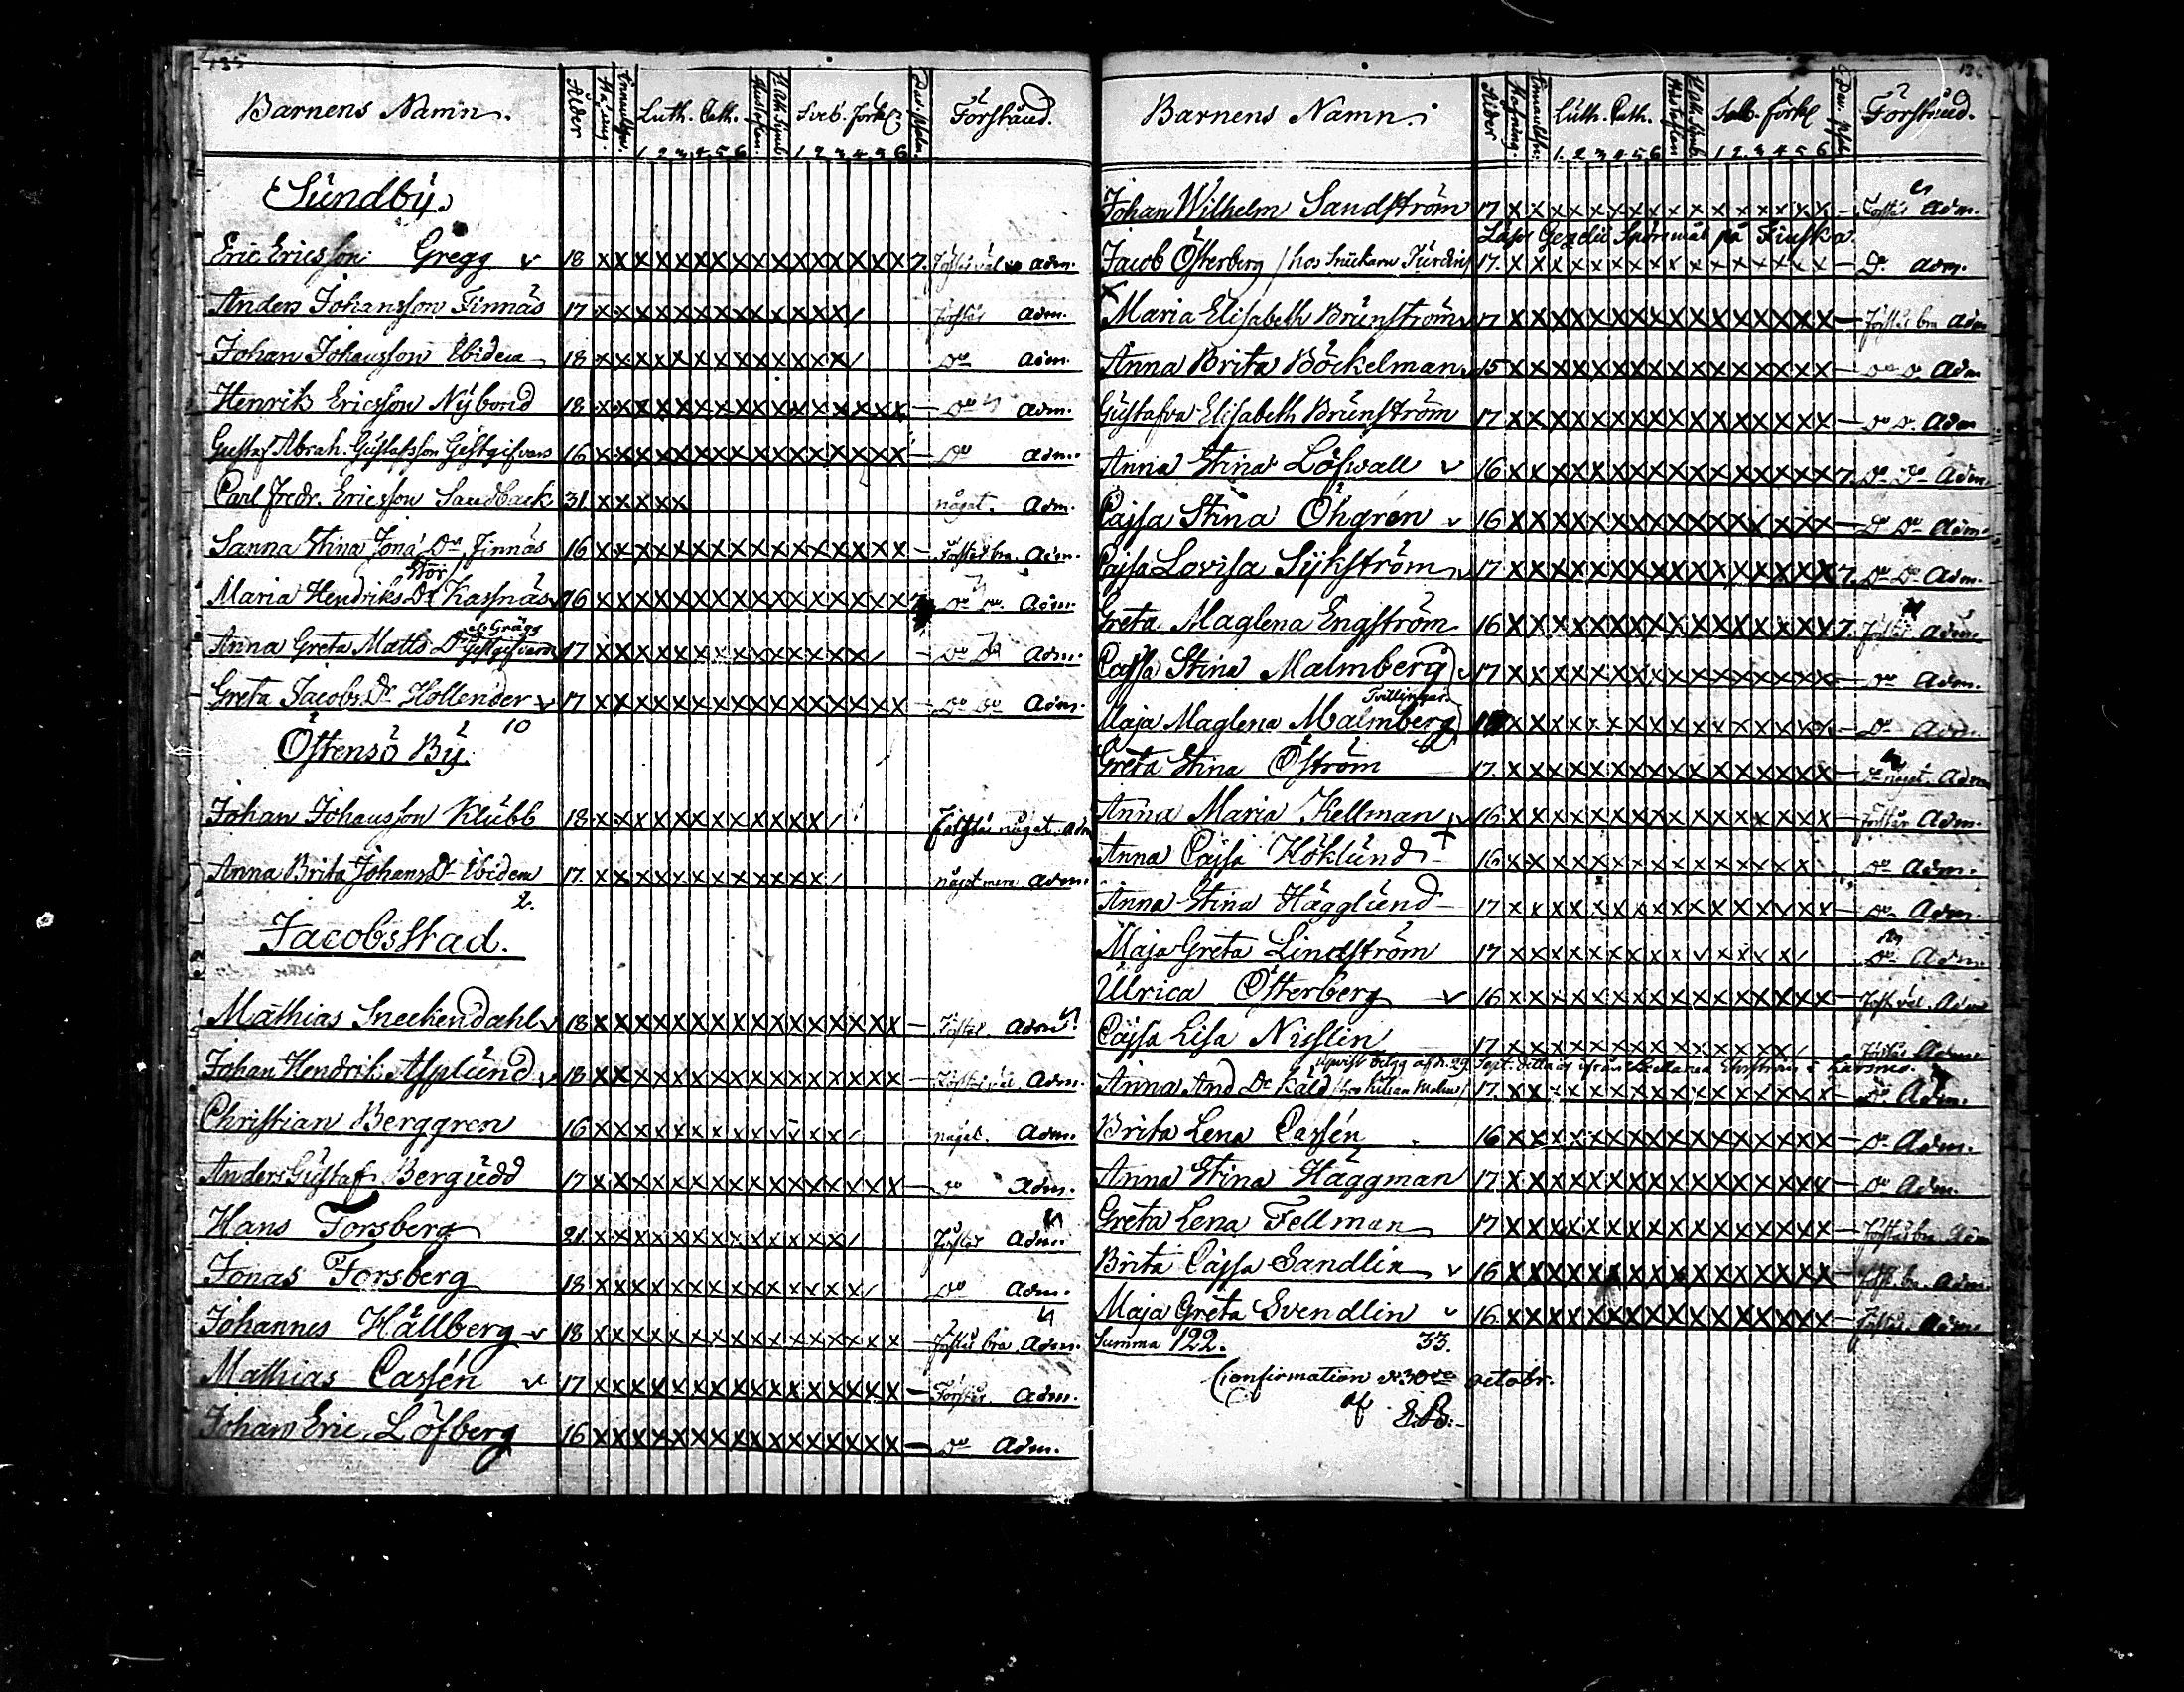 135
Barnens Namn. Ålder Luth. Cath. Hustaflan. Sveb. förkl. Förstånd.
1 2 3 4 5 6 1 2 3 4 5 6
Sundby.
Eric Ericsson Gregg v 18 x x x x x x x x x x x x x x x x 7. Adm.
Anders Johansson Finnäs 17 x x x x x x x x x x x x x / förstår Adm.
Johan Johansson Ibidem 18 x x x x x x x x x x x x x / Do Adm.
Henrik Ericsson Nybond 18 x x x x x x x x x x x x x x x x – Do Adm.
Gustaf Abrah. Gustafsson Gästgifvars 16 x x x x x x x x x x x x x x x x – Do Adm.
Carl Fredr. Ericsson Sandback 31 x x x x x något. Adm.
Sanna Stina Jona Dr Finnäs 16 x x x x x x x x x x x x x x x x – Förstår bra. Adm.
Stor
Maria Hendriks Dr Kassnäs v 16 x x x x x x x x x x x x x x x x 7 Do Do Adm.
Grägg
Anna Greta Matts Dr Gästgifvars 17 x x x x x x x x x x x x x x / – Do Do Adm.
Greta Jacobs Dr Hollender v 17 x x x x x x x x x x x x x x x x – Do Do Adm.
10
Östensö By.
Johan Johansson Klubb 18 x x x x x x x x x x x x / förstår något. Adm
Anna Brita Johans Dr Ibidem 17 x x x x x x x x x x x x / något mera Adm.
2.
Jacobsstad.
Mathias Sneckendahl v 18 x x x x x x x x x x x x x x x x – Förstår. Adm.
Johan Hendrik Asplund v 18 x x x x x x x x x x x x x x x x – Förstår väl Adm.
Christian Berggren 16 x x x x x x x x x x x x x / något. Adm.
Anders Gustaf Bergudd 17 x x x x x x x x x x x x x x x x – Do Adm.
Hans Forsberg 21 x x x x x x x x x x x x x / Förstår Adm.
Jonas Forsberg 18 x x x x x x x x x x x x x x / Do Adm.
Johannes Hällberg v 18 x x x x x x x x x x x x x x x x – förstår bra Adm.
Mathias Cassén v 17 x x x x x x x x x x x x x x x x – Förstår. Adm.
Johan Eric Löfberg 16 x x x x x x x x x x x x x x x x – Do Adm.
136
Barnens Namn. Ålder Luth. Cath. Hustaflan Sveb. förkl Förstånd.
1. 2 3 4 5 6 1 2. 3 4 5 6
Johan Wilhelm Sandström 17 x x x x x x x x x x x x x x x x – Förstår Adm.
Läser Spörsmål på Finska.
Jacob Österberg /hos 17. x x x x x x x x x x x x x x x x – Do Adm.
x
Maria Elisabeth Brunström v 17 x x x x x x x x x x x x x x x x – Förstår bra Adm
Anna Brita Böckelman v 15 x x x x x x x x x x x x x x x x – Do Do Adm
Gustafva Elisabeth Brunström 17 x x x x x x x x x x x x x x x x – Do Do Adm
Anna Stina Löfwall v 16 x x x x x x x x x x x x x x x x 7. Do Do Adm.
Cajsa Stina Öhgren v 16 x x x x x x x x x x x x x x x x – Do Do Adm.
Cajsa Lovisa Sykström v 17 x x x x x x x x x x x x x x x x 7. Do Do Adm.
Greta Maglena Engström 16 x x x x x x x x x x x x x x x x 7. förstår Adm.
Cajsa Stina Malmberg v 17 x x x x x x x x x x x x x x x x – Do Adm.
Tvillingar.
Maja Maglena Malmberg x x x x x x x x x x x x x x x x – Do Adm.
Greta Stina Öström 17. x x x x x x x x x x x x x x x x – Do något. Adm
Anna Maria Kellman v 16 x x x x x x x x x x x x x x x x – förstår Adm.
Anna Cajsa Höklund 16 x x x x x x x x x x x x x x x Do Adm.
Anna Stina Hägglund 17 x x x x x x x x x x x x x x x x – Do Adm.
Maja Greta Lindström 17 x x x x x x x x x x x x x x / Do Adm.
Ulrica Österberg v 16 x x x x x x x x x x x x x x x x – Förstår väl Adm
Cajsa Lisa Nisslin 17 x x x x x x x x x x x x x x / Förstår Adm.
29 Sept. ifrån i Larsmo.
Anna And. Dr Käld 17. x x x x x x x x x x x x x x x x – Do Adm.
Brita Lena Cassén 16 x x x x x x x x x x x x x x x x – Do Adm.
Anna Stina Häggman 17 x x x x x x x x x x x x x x x x – Do Adm.
Greta Lena Fellman 17 x x x x x x x x x x x x x x x x – Förstår bra Adm
Brita Cajsa Sandlin v 16 x x x x x x x x x x x x x x x x – Först. bra. Adm.
Maja Greta Svendlin v 16 x x x x x x x x x x x x x x x x – Förstår. Adm.
Summa 122. 33.
Confirmation d. 30de octobr.
af E.B.